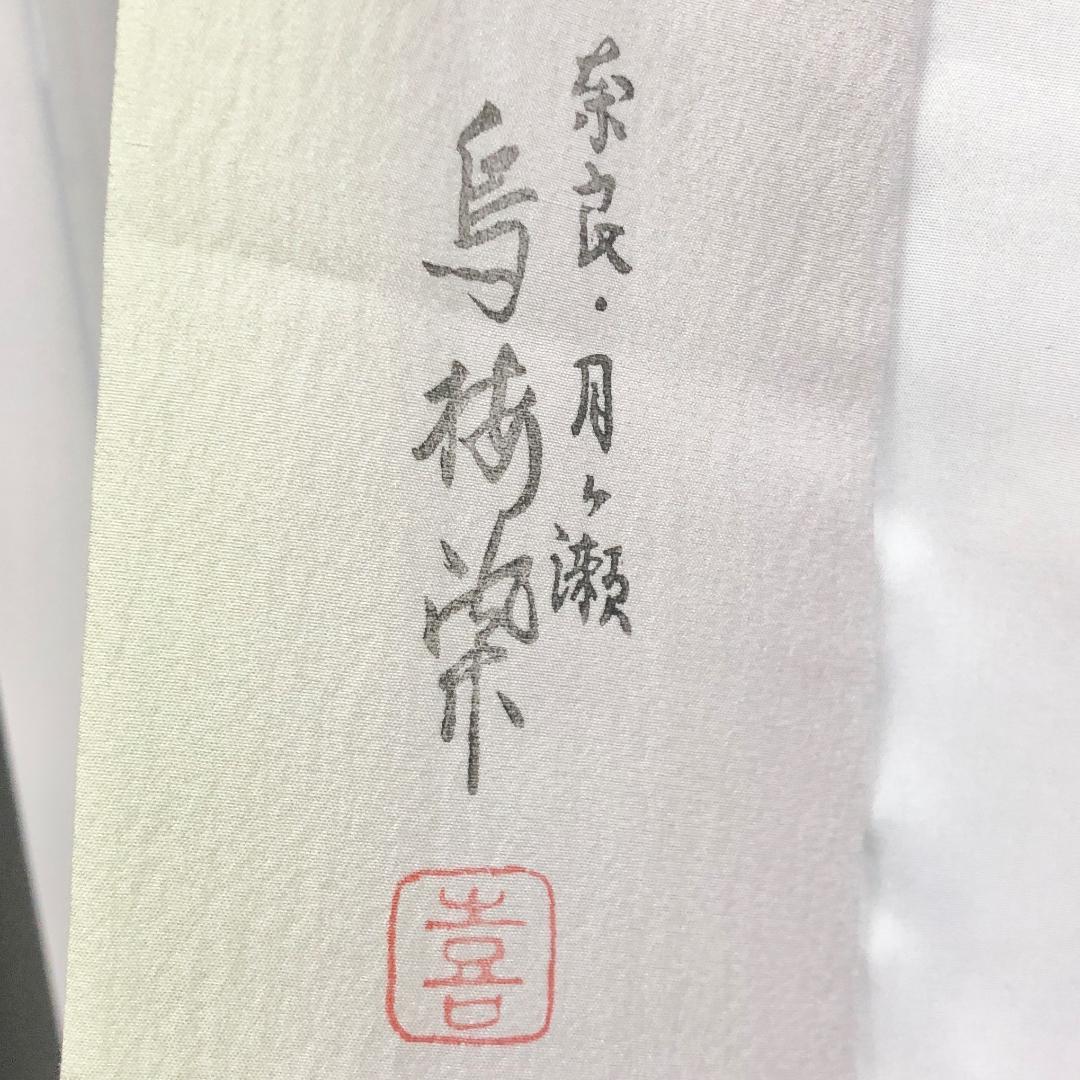 奈良・月ヶ瀬
烏梅染
喜